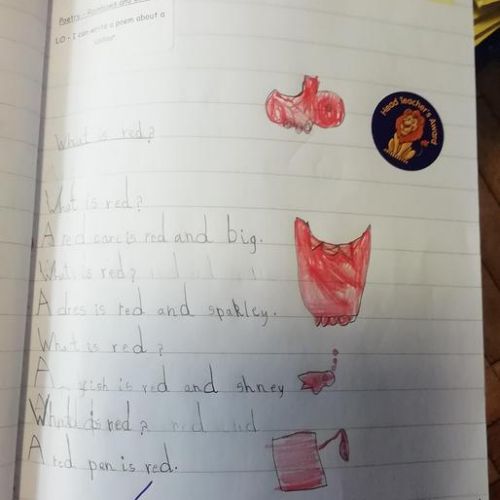 Poetry - Rainbows and
LO - I can write a poem about a colour
Head Teacher's Award
What is red?
What is red?
A red car is red and big.
What is red?
A dres is red and spakley.
What is red?
A fish is red and shney
What is red?
A red pen is red.